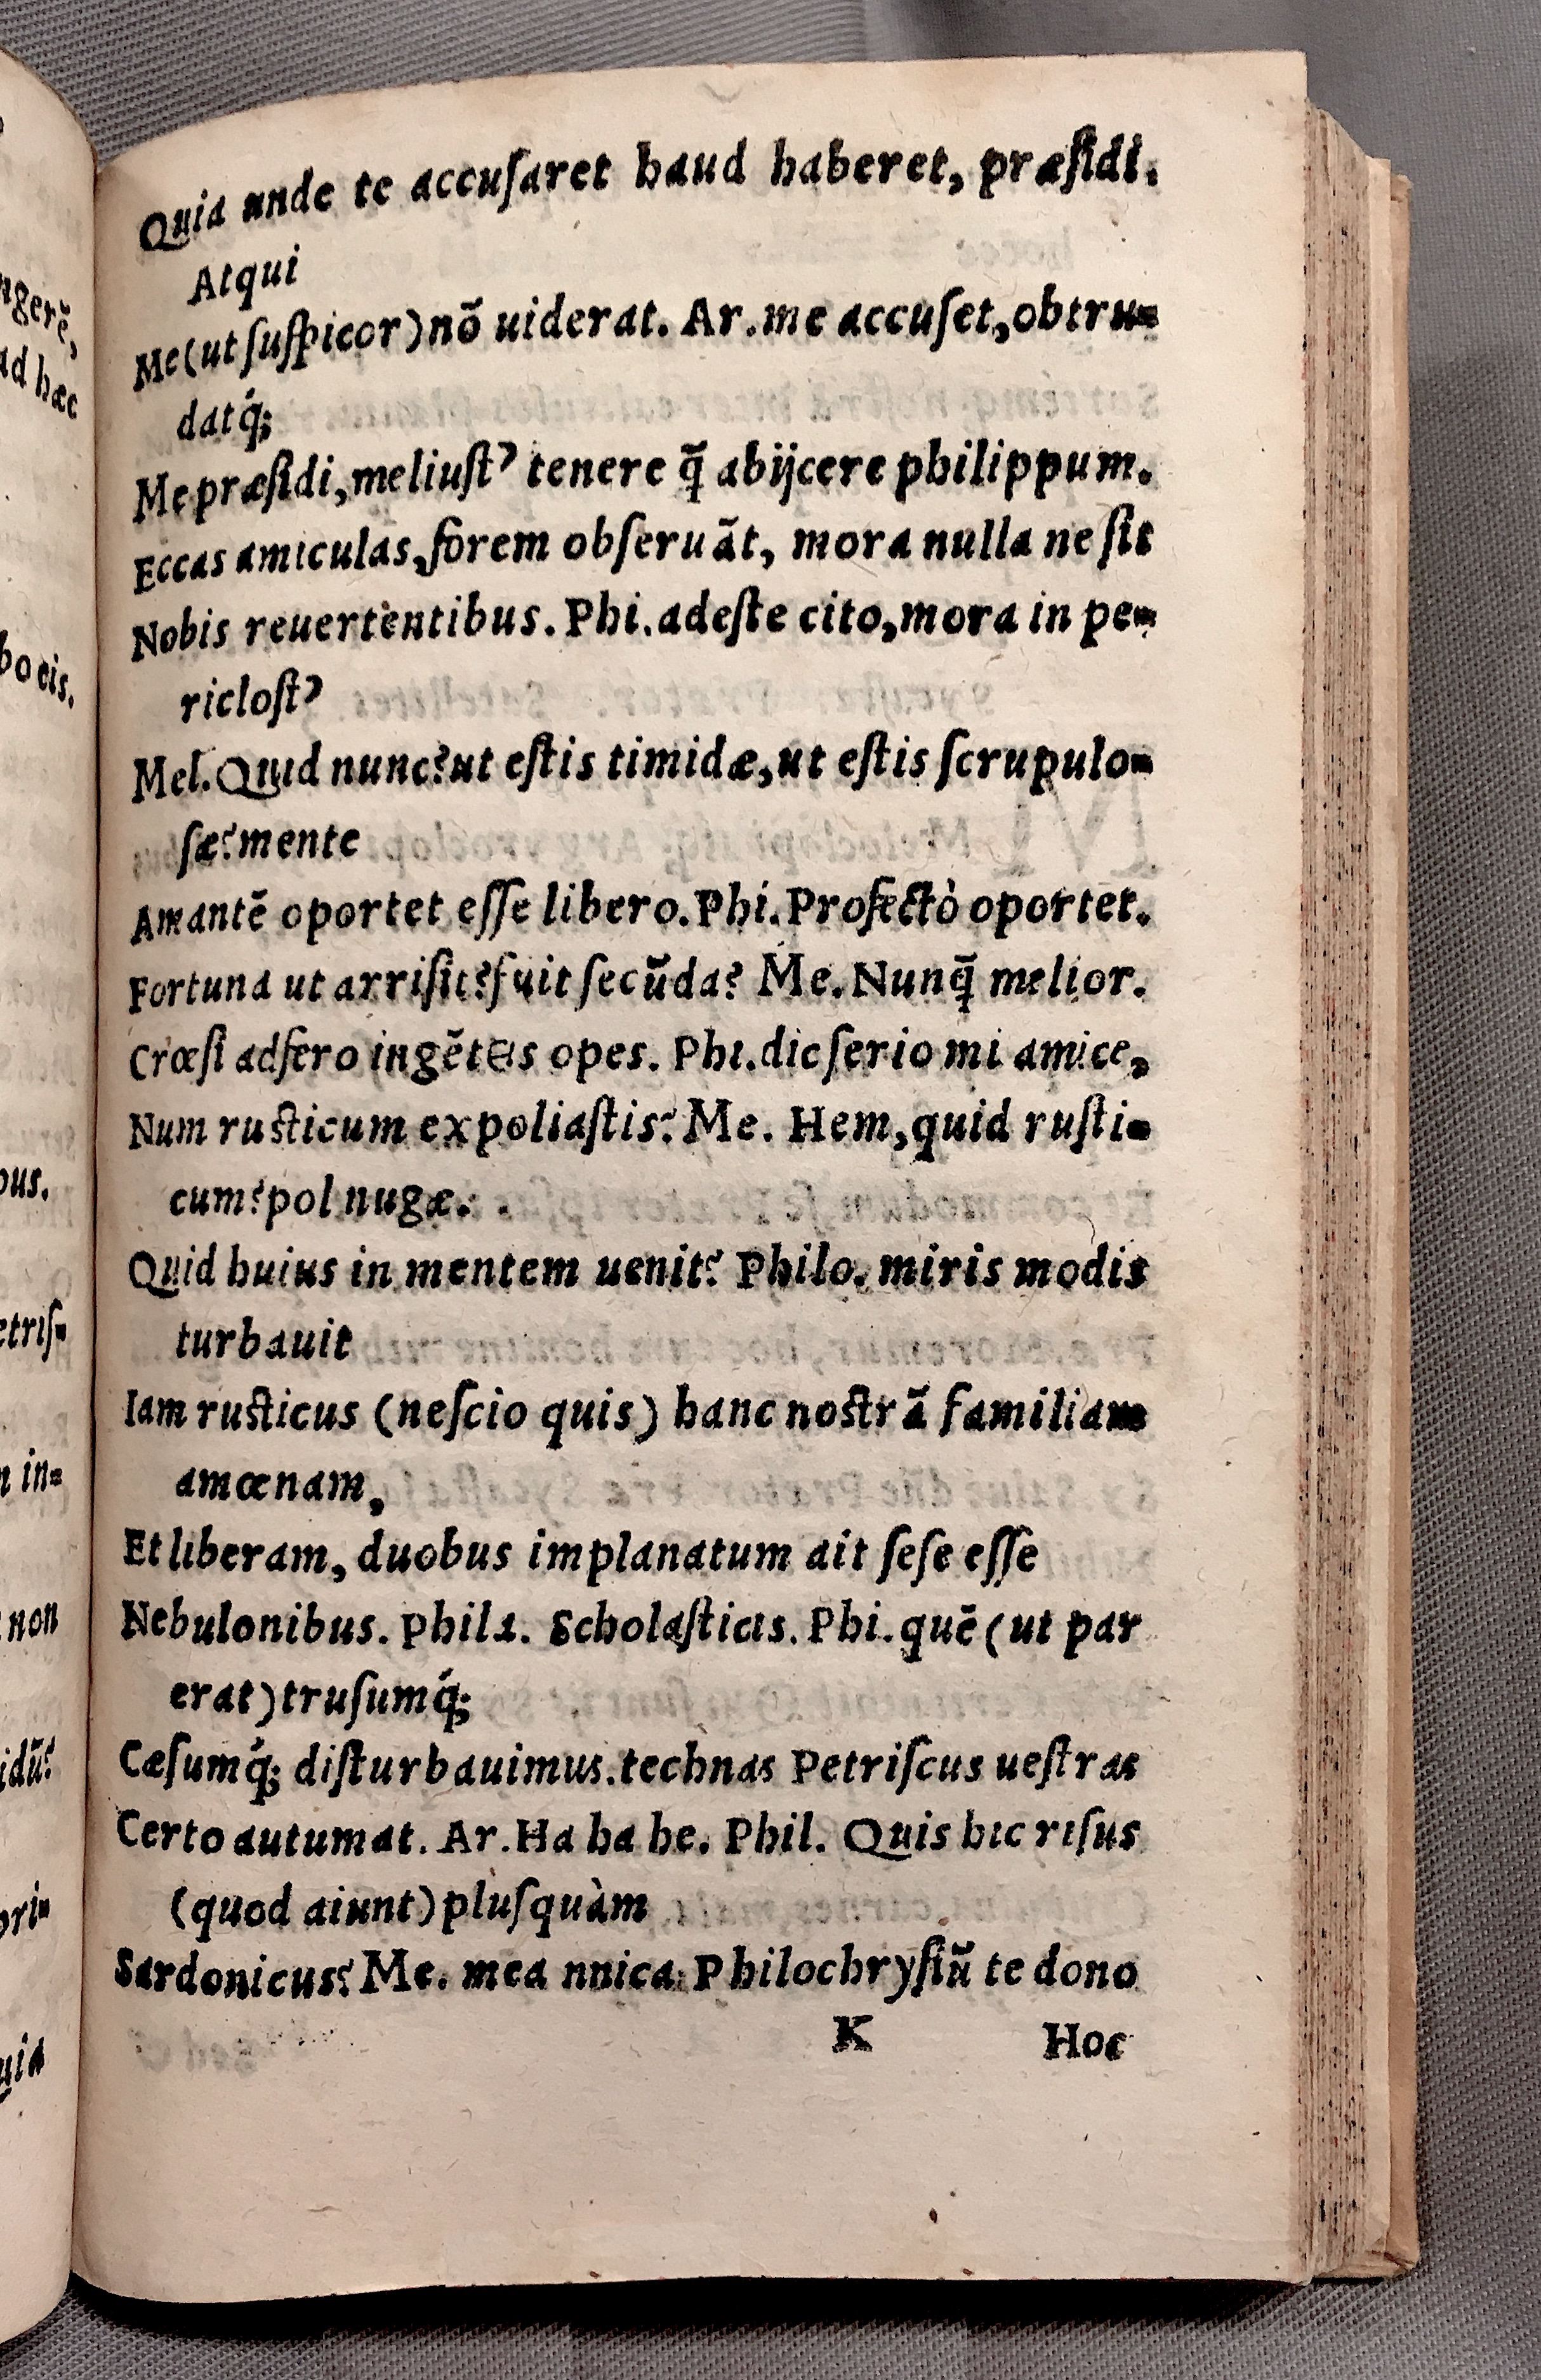 Quia unde te accuſaret haud haberet, præſidi.
Atqui
Me(ut ſuſpicor)nõ uiderat. Ar.me accuſet,obtru-
datq́;
Me præſidi,meliuſt? tenere q̃ abijcere philippum.
Eccas amiculas,forem obſeruãt, mora nulla ne ſit
Nobis reuertentibus. Phi.adeſte cito,mora in pe-
ricloſt?
Mel.Quid nunc?ut eſtis timidæ,ut eſtis ſcrupulo-
ſæ?mente
Amantẽ oportet eſſe libero.Phi.Profectò oportet.
Fortuna ut arriſit?fuit ſecũda? Me.Nunq̃ melior.
Crœſi adfero ingẽtes opes. Phi.dic ſerio mi amice,
Num ruſticum expoliaſtis? Me. Hem,quid ruſti-
cum?pol nugæ.
Quid huius in mentem uenit? Philo. miris modis
turbauit
Iam ruſticus (neſcio quis) hanc noſtrã familiam
amœnam,
Et liberam, duobus implanatum ait ſeſe eſſe
Nebulonibus. Phila. Scholaſticis. Phi.quẽ(ut par
erat)truſumq́;
Cæſumq́; diſturbauimus.technas Petriſcus ueſtras
Certo autumat. Ar.Ha ha he. Phil. Quis hic riſus
(quod aiunt)pluſquàm
Sardonicus? Me. mea nnica Philochryſiũ te dono
K Hoc
ngerẽ,
ad hæc
bo eis.
bus.
etriſ-
n in-
non
idũ?
ori-
uia